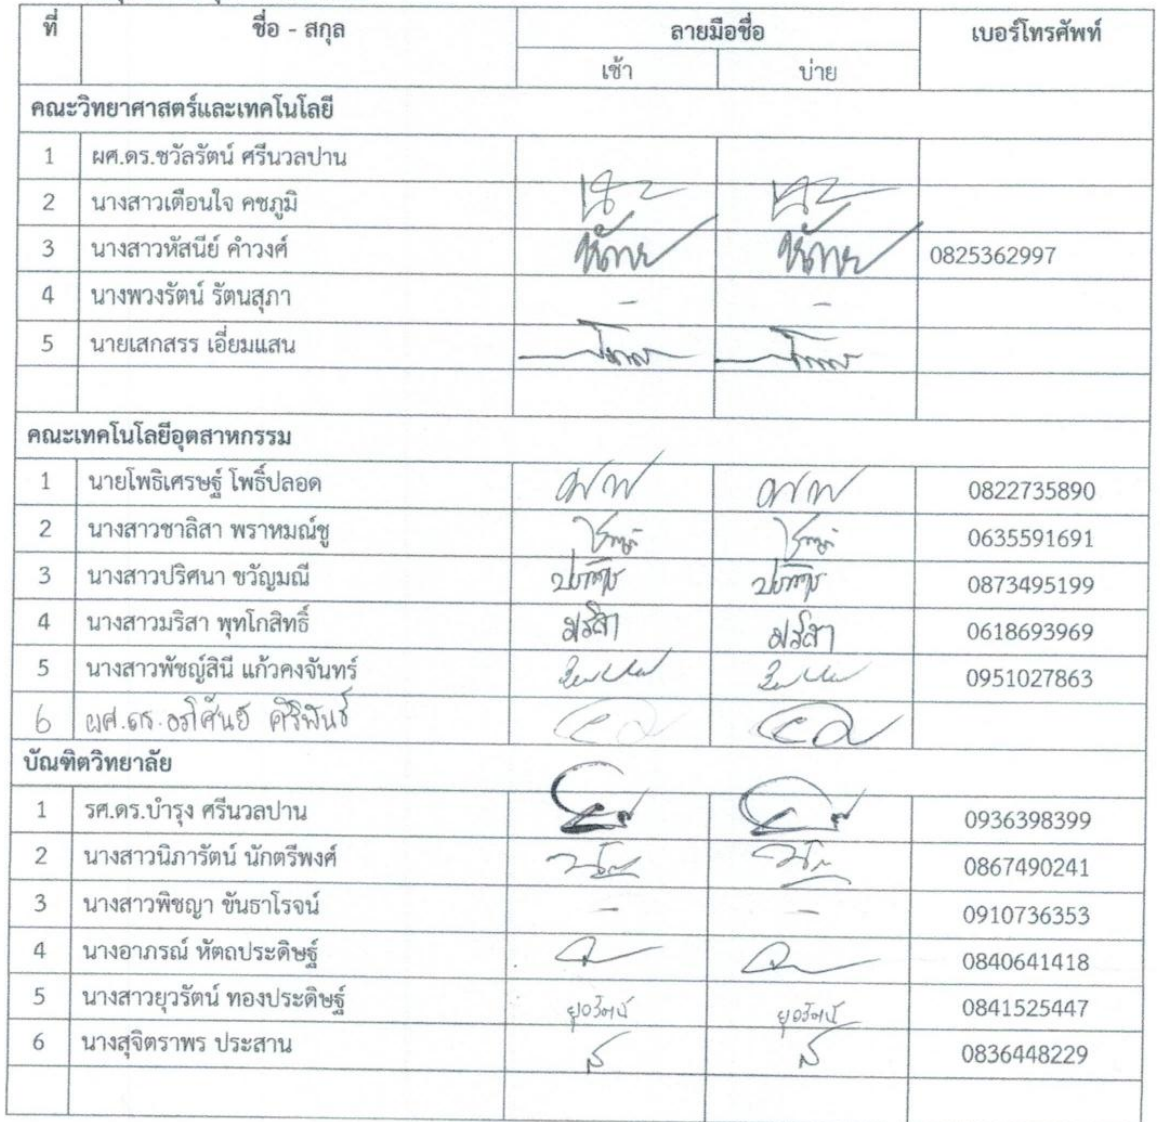 ที่ ชื่อ - สกุล ลายมือชื่อ เบอร์โทรศัพท์
เช้า บ่าย
คณะวิทยาศาสตร์และเทคโนโลยี
1 ผศ.ดร.ชวัลรัตน์ ศรีนวลปาน
2 นางสาวเตือนใจ คชภูมิ
3 นางสาวหัสนีย์ คำวงศ์ 0825362997
4 นางพวงรัตน์ รัตนสุภา - -
5 นายเสกสรร เอี่ยมแสน
คณะเทคโนโลยีอุตสาหกรรม
1 นายโพธิเศรษฐ์ โพธิ์ปลอด 0822735890
2 นางสาวชาลิสา พราหมณ์ชู 0635591691
3 นางสาวปริศนา ขวัญมณี 0873495199
4 นางสาวมริสา พุทโกสิทธิ์ มริสา มริสา 0618693969
5 นางสาวพัชญ์สินี แก้วคงจันทร์ 0951027863
6 ผศ.ดร.
บัณฑิตวิทยาลัย
1 รศ.ดร.บำรุง ศรีนวลปาน 0936398399
2 นางสาวนิภารัตน์ นักตรีพงศ์ 0867490241
3 นางสาวพิชญา ขันธาโรจน์ - - 0910736353
4 นางอาภรณ์ หัตถประดิษฐ์ 0840641418
5 นางสาวยุวรัตน์ ทองประดิษฐ์ ยุวรัตน์ ยุวรัตน์ 0841525447
6 นางสุจิตราพร ประสาน 0836448229